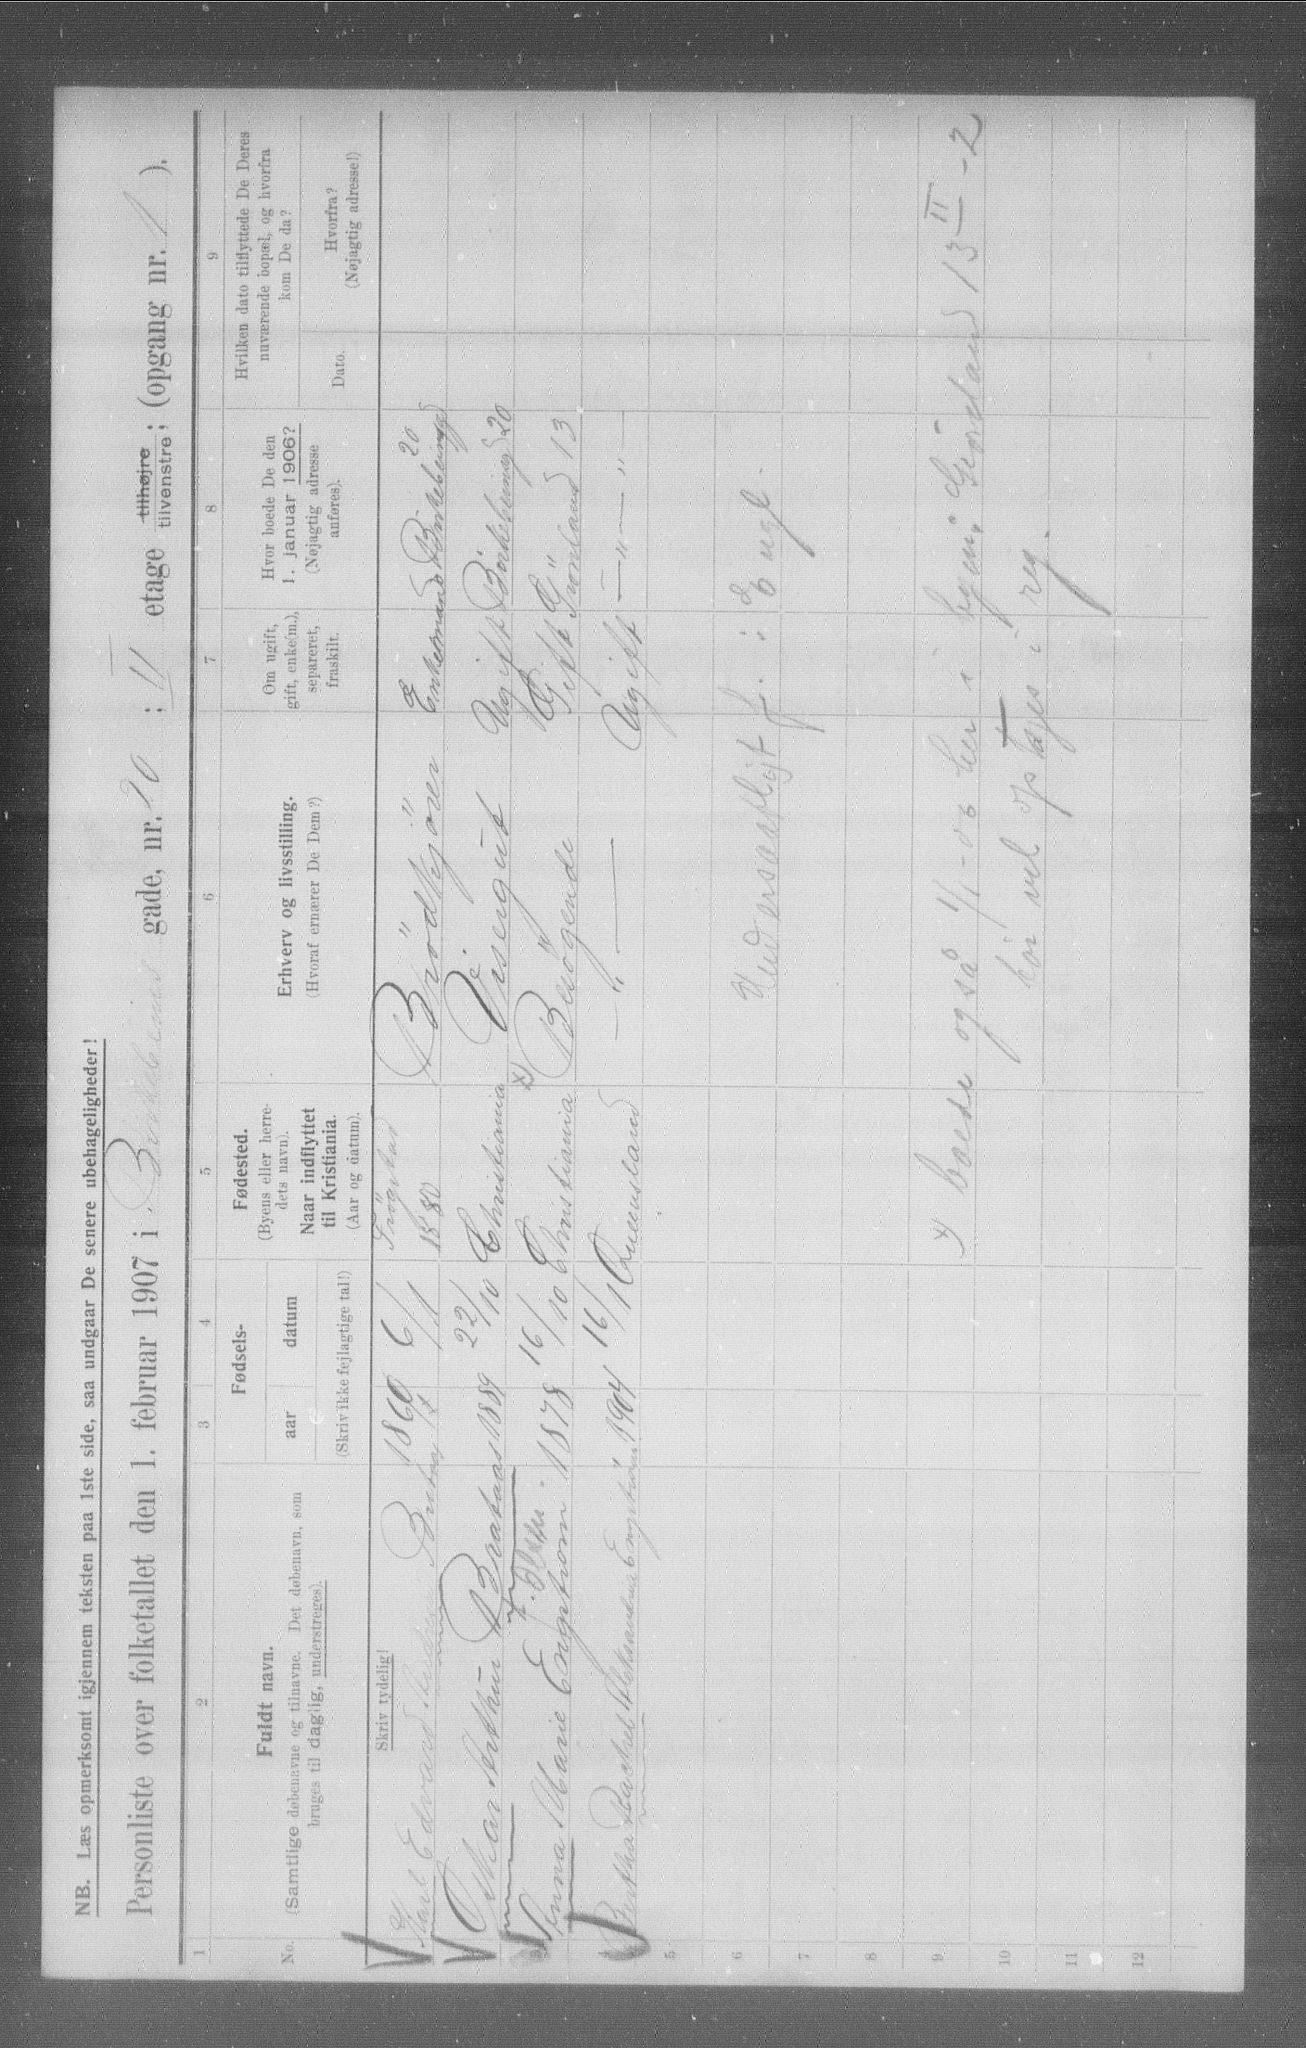 NB. Læs opmerksomt igjennem teksten paa 1ste side, saa undgaar De senere ubehageligheder!
Personliste over folketallet den 1. februar 1907 i Birkebeiner gade, nr. 20 ; II etage tilhøjre tilvenstre; (opgang nr. 1 ).
1 2 3 4 5 6 7 8 9
No.
Fuldt navn.
(Samtlige døbenavne og tilnavne. Det døbenavn, som
bruges til daglig, understreges).
Skriv tydelig!
Fødsels-
aar datum
(Skriv ikke fejlagtige tal!)
Fødested.
(Byens eller herre-
dets navn).
Naar indflyttet
til Kristiania.
(Aar og datum).
Erhverv og livsstilling.
(Hvoraf ernærer De Dem?)
Om ugift,
gift, enke(m.),
separeret,
fraskilt.
Hvor boede De den
1. januar 1906?
(Nøjagtig adresse
anføres).
Hvilken dato tilflyttede De Deres
nuværende bopæl, og hvorfra
kom De da?
Dato.
Hvorfra?
(Nøjagtig adresse!)
Karl Edvard 1860 6/1 Trögstad 1880 Brödkjörer Enkemand Birkebeinergd 20
Othar Arthur Braataas 1889 22/10 Christiania Visergut Ugift Birkebeinergd 20
f. Olsen.
3 Anna Marie Engström 1878 16/10 Christiania x) Besögende Gift Grönland 13
4 Bertha Rachel Aleksandra Engström 1904 16/1 Queensland — " — Ugift — " — " —
5
6 Undersaatligt f. : Engl.
7
8
9 x) boede også 1/1-06 her i byen: Grönland 13 II - 2
10 bör vel optages i reg.
11
12